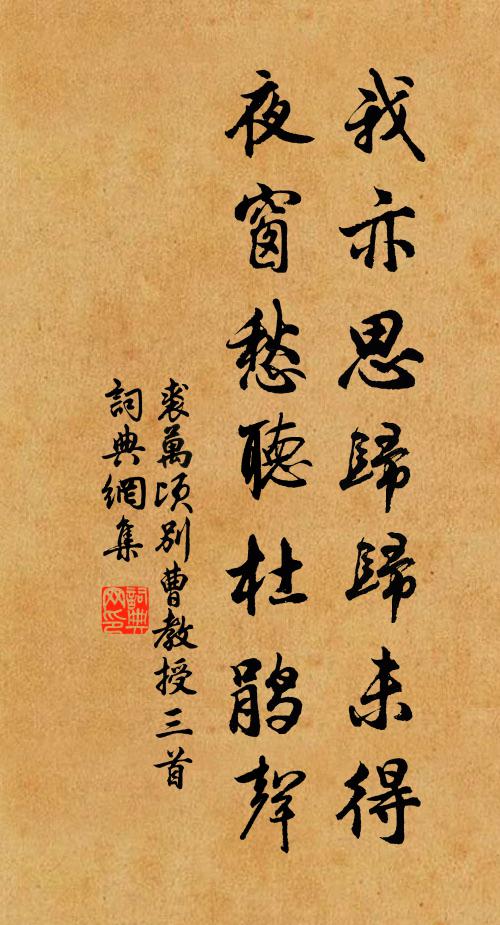 我亦思歸歸未得
夜窗愁聽杜鵑聲
裘萬頃別曹教授三首
詞典網集
詞典
网印